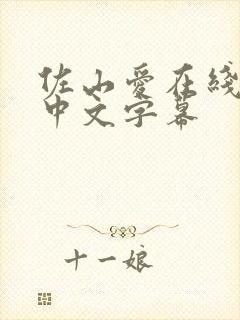 佐山愛在綫
中文字幕
十一娘